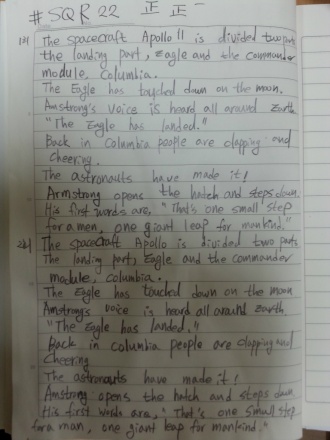 #SQR 22 正 正 一
1회 The spacecraft Apollo 11 is divided two parts
the landing part, Eagle and the commander
module, Columbia.
The Eagle has touched down on the moon.
Amstrong's voice is heard all around Earth
"The Eagle has landed."
Back in Columbia people are clapping and
cheering.
The astronauts have made it!
Armstrong opens the hatch and steps down.
His first words are, "That's one small step
for a men, one giant leap for mankind."
2회 The spacecraft Apollo is divided two parts
The landing part, Eagle and the commander
module, columbia.
The Eagle has touched down on the moon
Amstrong's voice is heard all around Earth
"The Eagle has landed."
Back in columbia people are clapping and
Cheering
The astronauts have made it!
Amstrong opens the hatch and steps down
His first words are, "That's one small step
for a man, one giant leap for mankind."